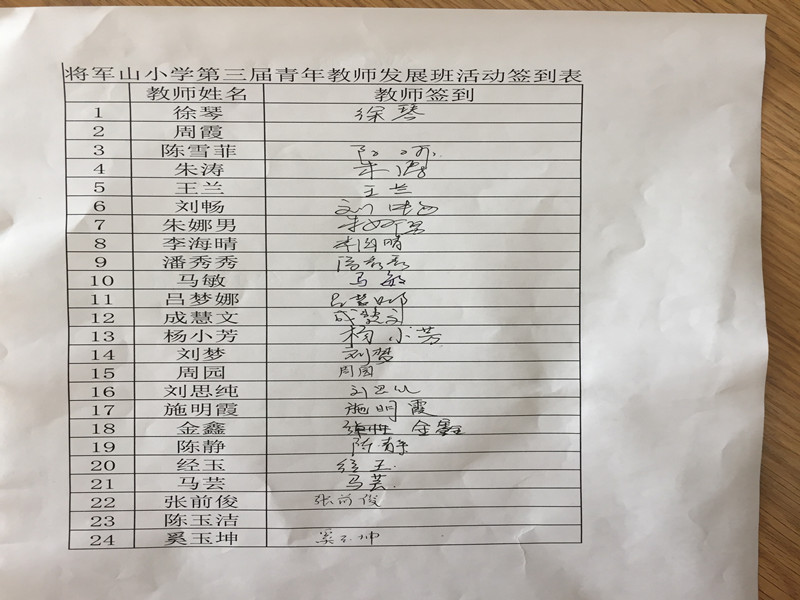 将军山小学第三届青年教师发展班活动签到表
教师姓名 教师签到
1 徐琴 徐琴
2 周霞
3 陈雪菲
4 朱涛 朱涛
5 王兰 王兰
6 刘畅 刘畅
7 朱娜男 朱娜男
8 李海晴 李海晴
9 潘秀秀 潘秀秀
10 马敏 马敏
11 吕梦娜 吕梦娜
12 成慧文 成慧文
13 杨小芳 杨小芳
14 刘梦 刘梦
15 周园 周园
16 刘思纯 刘思纯
17 施明霞 施明霞
18 金鑫 金鑫
19 陈静 陈静
20 经玉 经玉
21 马芸 马芸
22 张前俊 张前俊
23 陈玉洁
24 奚玉坤 奚玉坤